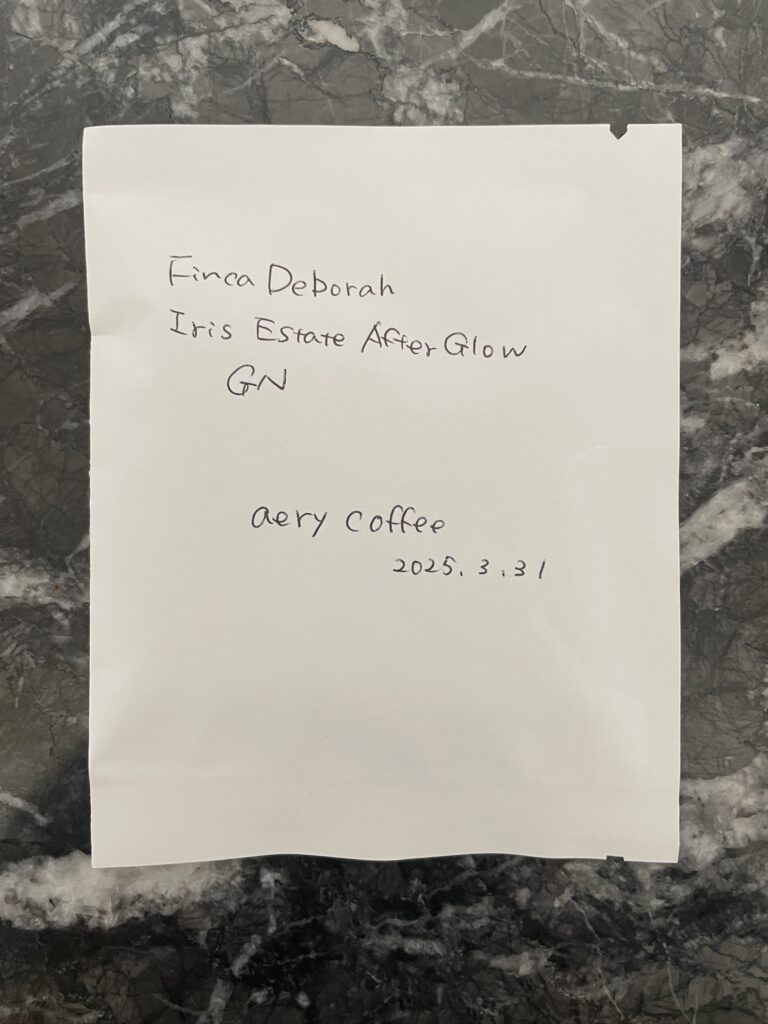 Finca Deborah
Iris Estate After Glow
GN
aery coffee
2025. 3. 31